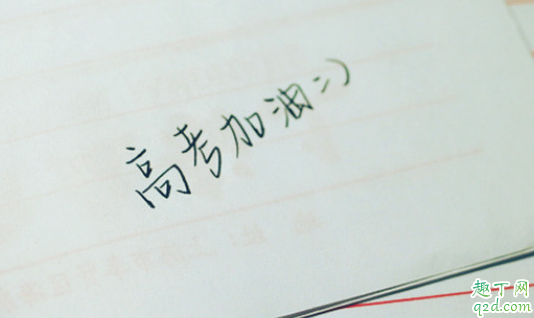 高考加油=)
趣丁网
q2d.com